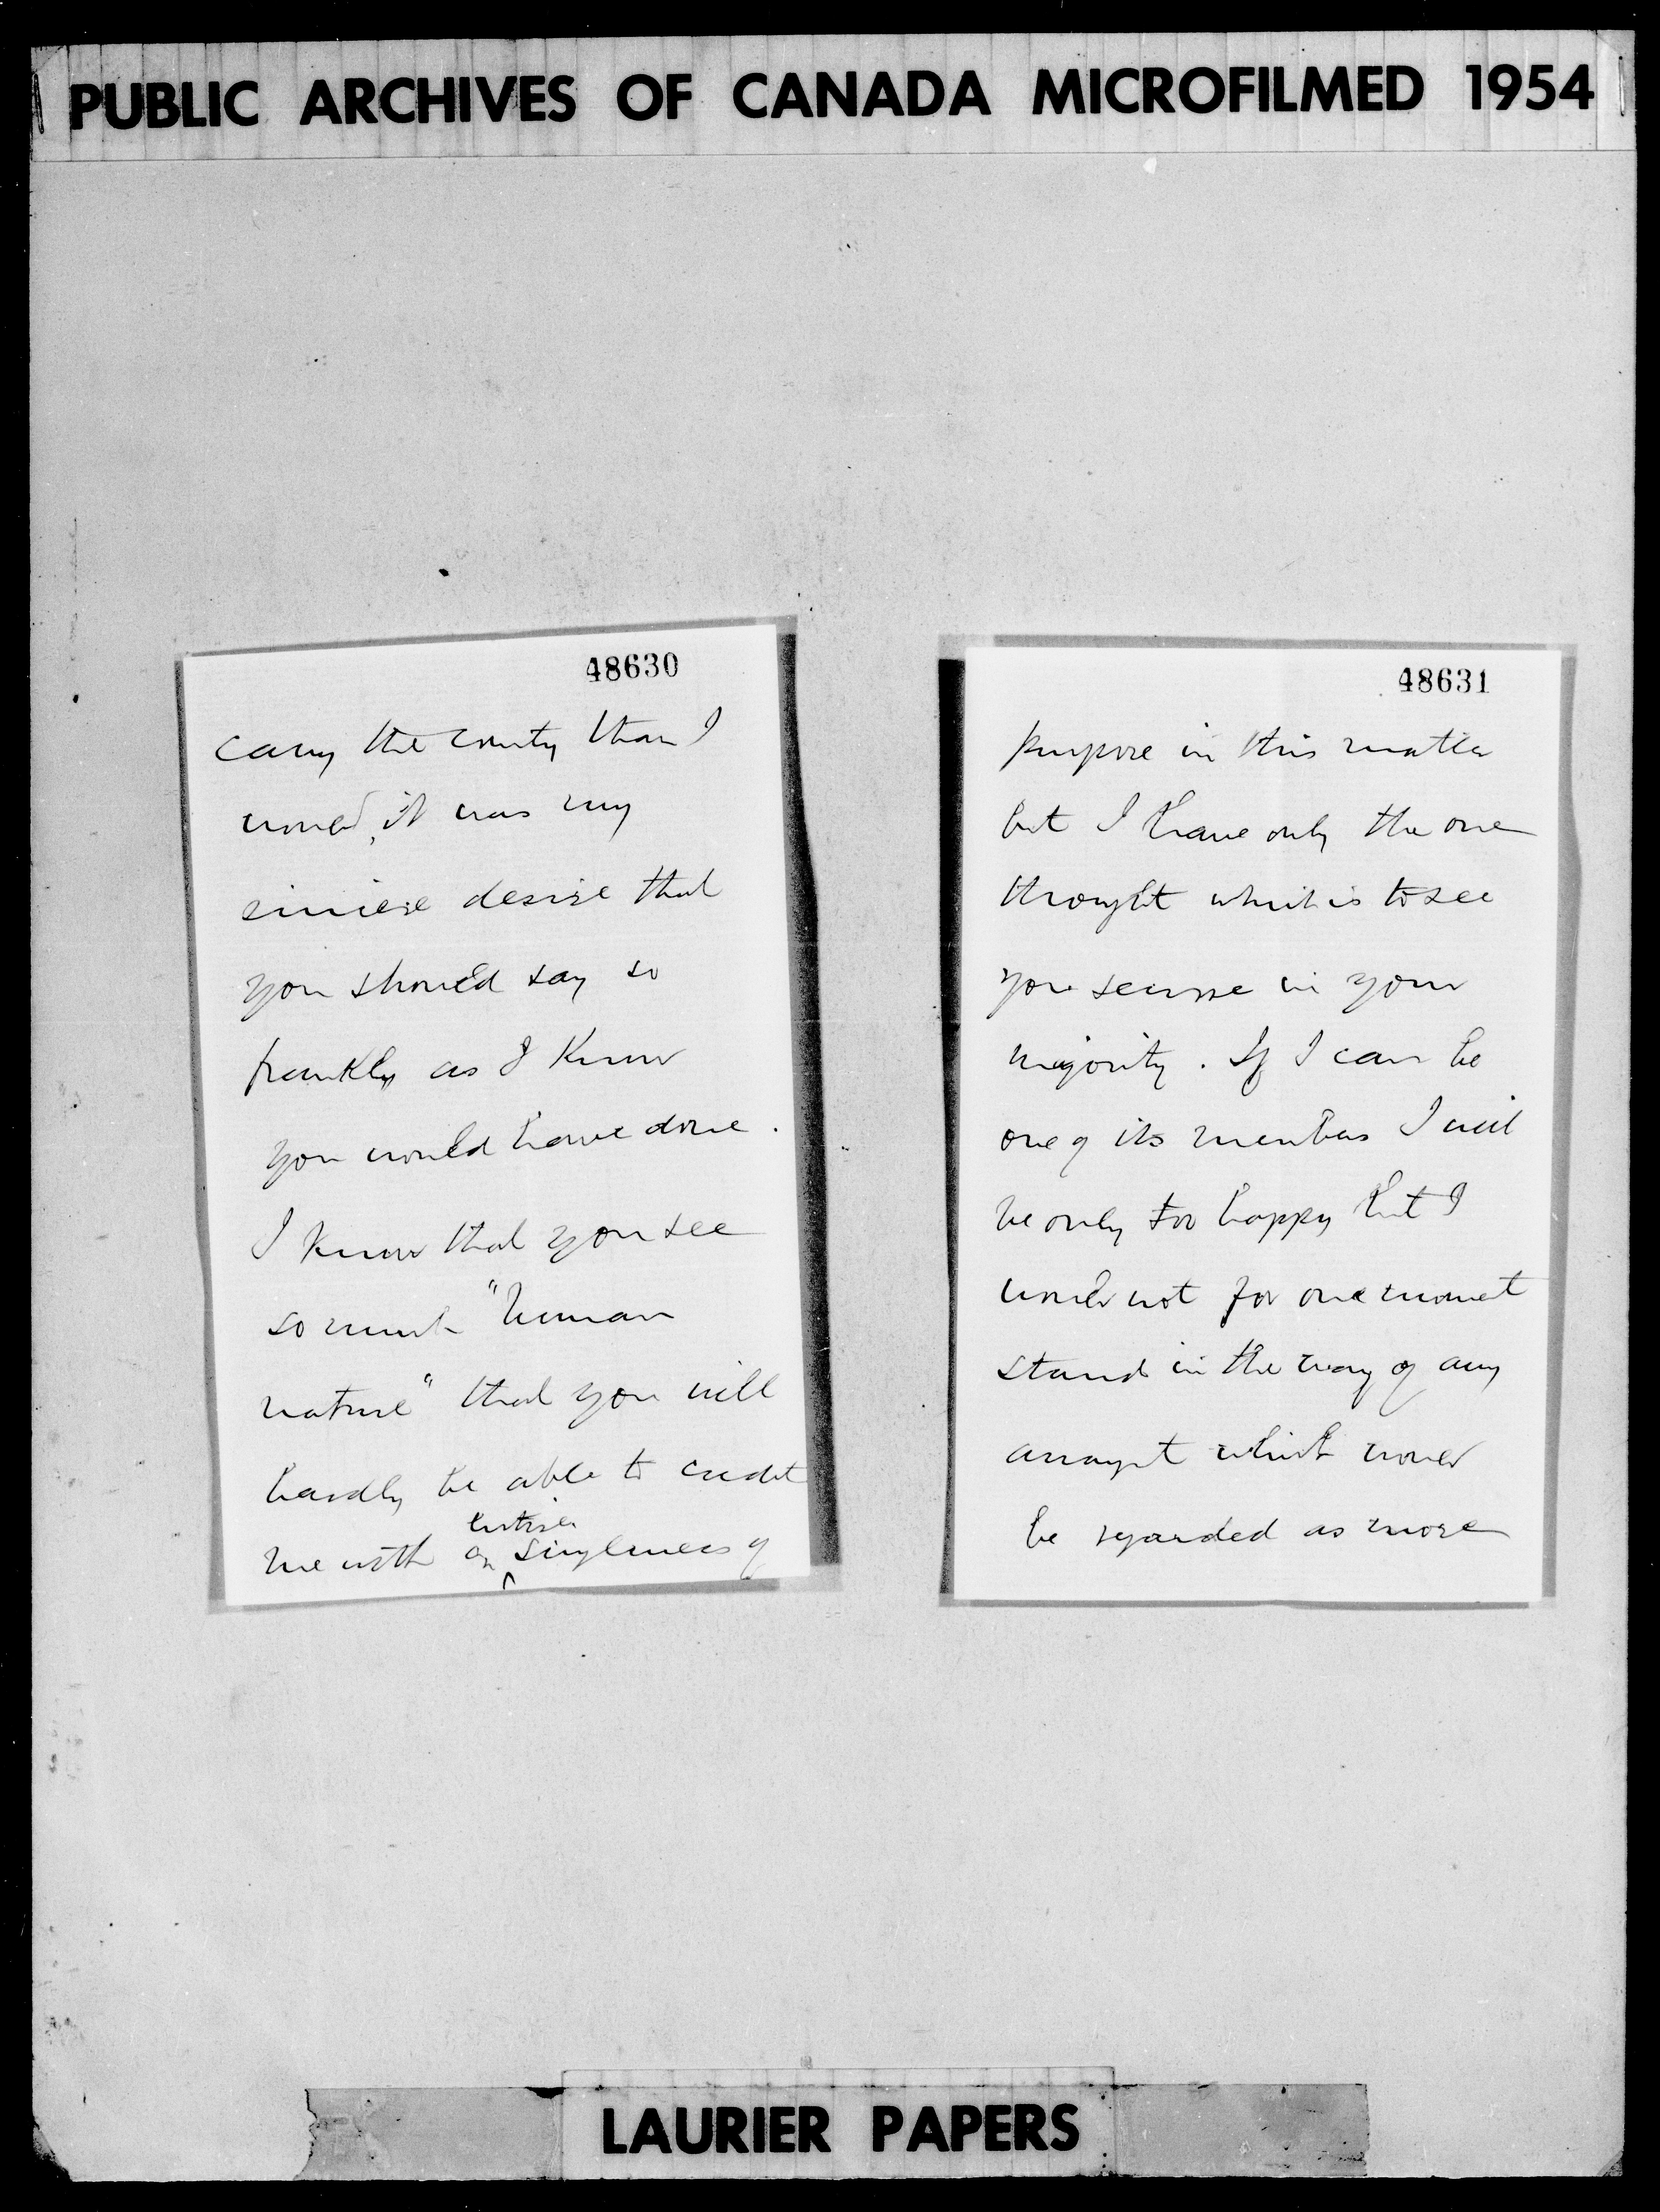 PUBLIC ARCHIVES OF CANADA MICROFILMED 1954
48630
carry the county than I
would, it was my
sincere desire that
you should say so
frankly as I know
you would have done.
I know that you see
so much "human
nature" that you will
hardly be able to credit
entire
me with an singleness of
48631
purpose in this matter
but I have only the one
thought which is to see
you secure in your
majority. If I can be
one of its members I will
be only too happy but I
would not for one moment
stand in the way of any
arrangt which would
be regarded as more
LAURIER PAPERS